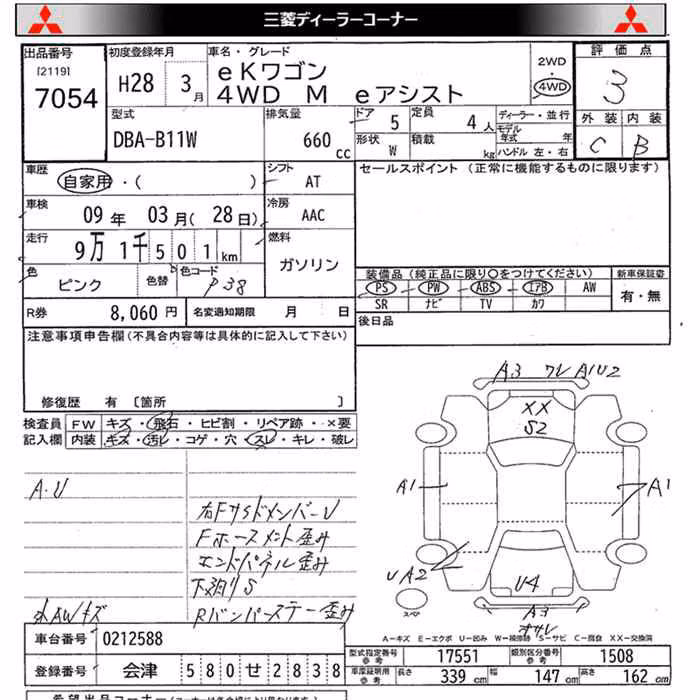 三菱ディーラーコーナー
出品番号 初度登録年月 車名・グレード 評価点
[2119] eKワゴン 2WD
7054 H28 3月 4WD M eアシスト 4WD 3
型式 排気量 ドア 5 定員 4人 ディーラー・並行 外装 内装
DBA-B11W 660cc 形状 W 積載 kg モデル年式 年 C B
ハンドル 左・右
車歴 自家用・( ) シフト AT セールスポイント (正常に機能するものに限ります)
車検 09年 03月(28日) 冷房 AAC
走行 9万1千501km 燃料 ガソリン
色 ピンク 色替 色コード P38 装備品(純正品に限り○をつけてください) 新車保証書
PS PW ABS エアB AW 有・無
SR ナビ TV カワ
R券 8,060円 名変通知期限 月 日 後日品
注意事項申告欄(不具合内容等は具体的に記入して下さい)
修復歴 有 [箇所 ]
検査員 FW キズ・飛石・ヒビ割・リペア跡・×要
記入欄 内装 キズ・汚レ・コゲ・穴・スレ・キレ・破レ
A3 ワレ A1U2
XX
S2
A1 A1
A.U
右Fサイドメンバーひ
Fホースメント歪み
エンドパネル歪み
下廻りS
Rバンパーステー歪み
UA2
U4
A3
スペア
A-キズ E-エクボ U-凹み W-補修跡 S-サビ C-腐食 XX-交換済
車台番号 0212588
型式指定番号 参考 17551 類別区分番号 参考 1508
登録番号 会津 580せ2838
車庫証明用 参考 長さ 339cm 幅 147cm 高さ 162cm